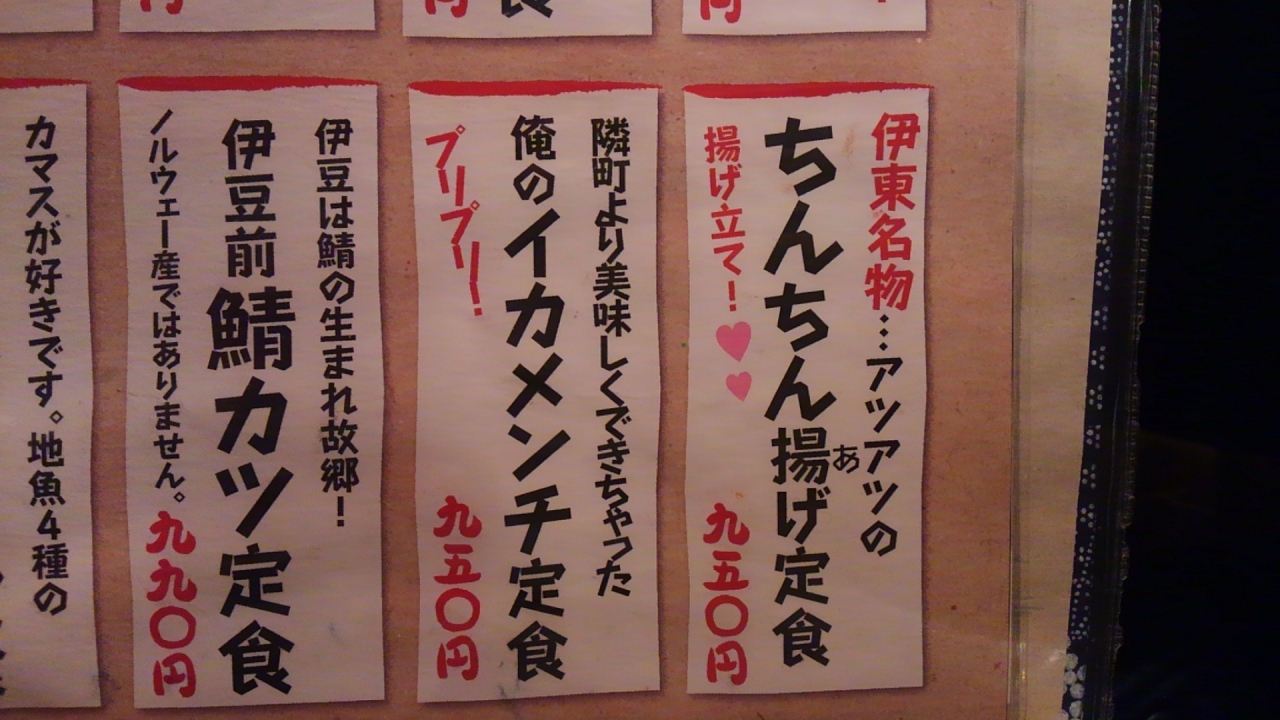 円
食
円
円
伊東名物…アツアツの
ちんちん揚げ定食
あ
揚げ立て！
九五〇円
隣町より美味しくできちゃった
俺のイカメンチ定食
プリプリー！
九五〇円
伊豆は鯖の生まれ故郷！
伊豆前鯖カツ定食
ノルウェー産ではありません。
九九〇円
カマスが好きです。地魚4種の